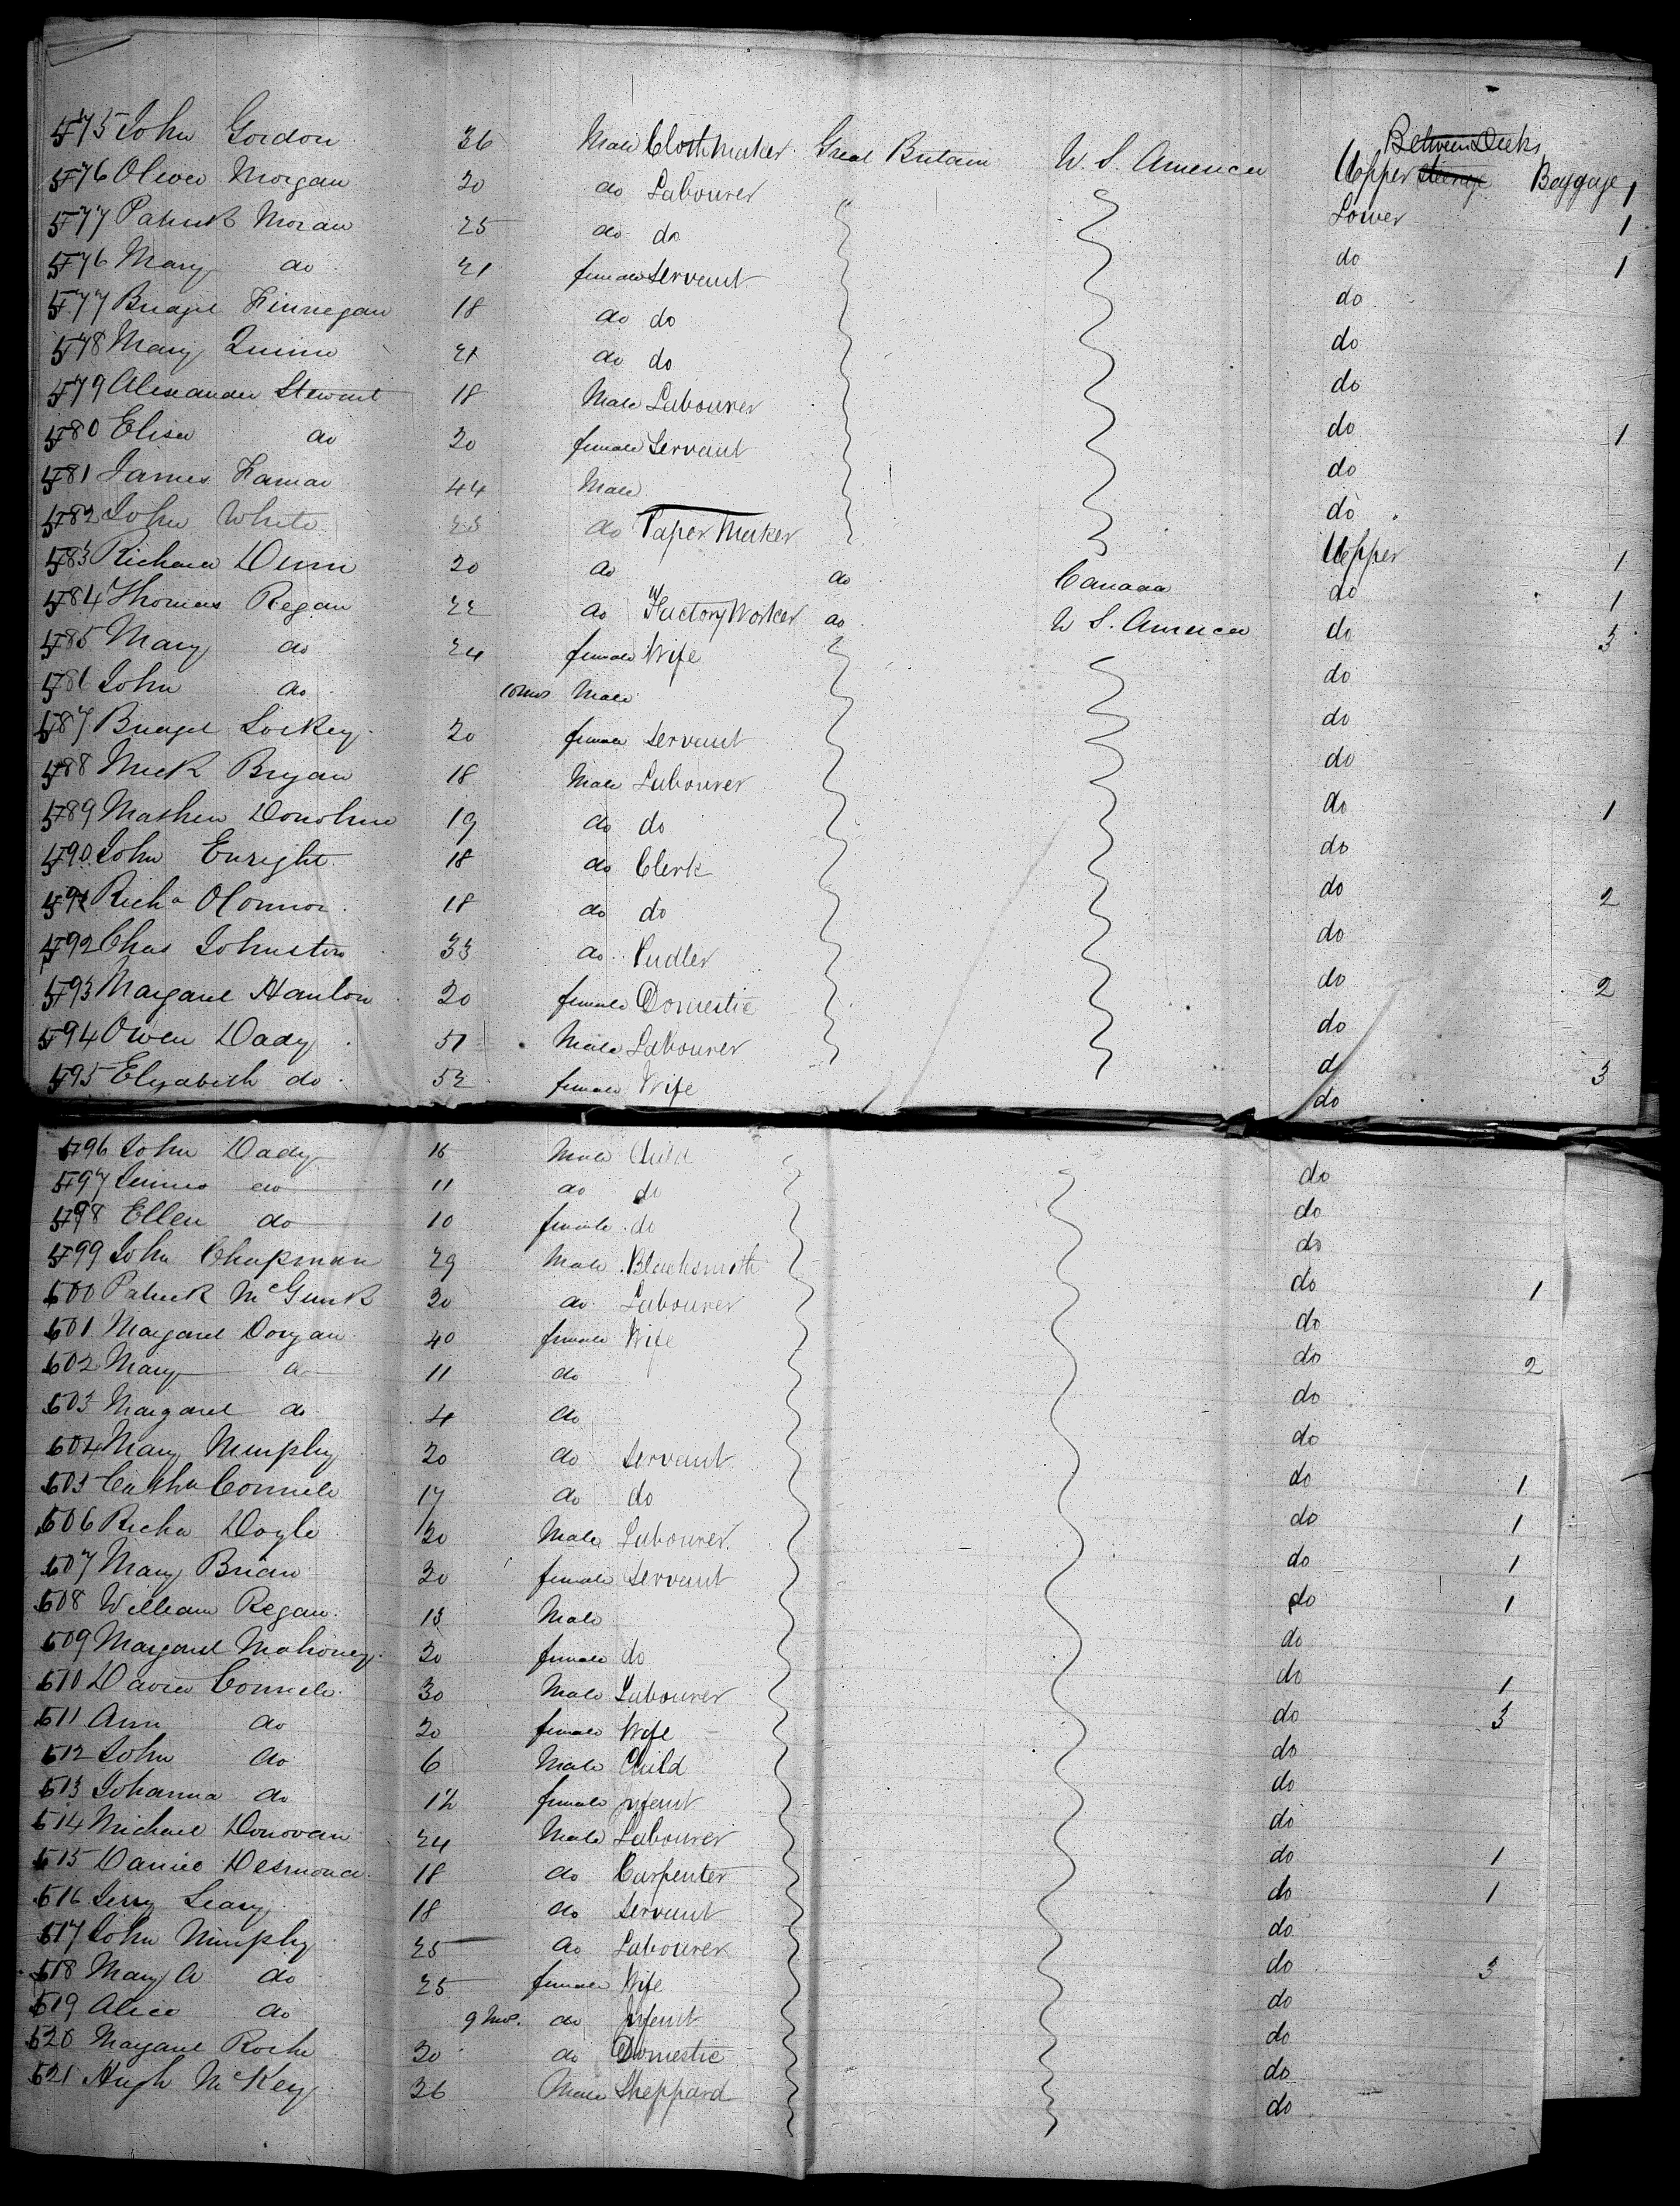 Between Decks
475 John Gordon 36 Male Cloth Maker Great Britain U. S. America Upper Steerage Baggage 1
476 Oliver Morgan 20 do Labourer Lower 1
477 Patrick Moran 25 do do do 1
476 Mary do 21 female Servant do
477 Bridget Finnegan 18 do do do
478 Mary Quinn 21 do do do
479 Alexander Stewart 18 Male Labourer do 1
480 Elisa do 20 female Servant do
481 James 44 Male do
482 John White 25 do Paper Maker Upper 1
483 Richard Dunn 20 do do Canada do 1
484 Thomas Regan 22 do Factory Worker do U S. America do 3
485 Mary do 24 female Wife do
486 John do 10 mos Male do
487 Bridget Lockey 20 female Servant do
488 Mick Bryan 18 Male Labourer do 1
489 Mathew Donohue 19 do do do
490 John Enright 18 do Clerk do 2
491 Richd OConnor 18 do do do
492 Chas Johnston 33 do Pudler do 2
493 Margaret Hanlon 20 female Domestic do
494 Owen Dady 51 Male Labourer d 3
495 Elizabeth do 52 female Wife do
496 John Dady 16 Male Child do
497 James do 11 do do do
498 Ellen do 10 female do do
499 John Chapman 29 Male Blacksmith do 1
500 Patrick McGurk 30 do Labourer do
501 Margaret Dorgan 40 female Wife do 2
502 Mary do 11 do do
503 Margaret do 4 do do
504 Mary Murphy 20 do Servant do 1
505 Cathn Connell 17 do do do 1
506 Richd Doyle 30 Male Labourer do 1
507 Mary Brian 30 female Servant do 1
508 William Regan 13 Male do
509 Margaret Mahoney 20 female do do 1
510 David Connell 30 Male Labourer do 3
511 Ann do 30 female Wife do
512 John do 6 Male Child do
513 Johanna do 1½ female Infent do
514 Michael Donovan 24 Male Labourer do 1
515 Daniel Desmond 18 do Carpenter do 1
516 Jerry Leary 18 do Servant do
517 John Murphy 25 do Labourer do 3
518 Mary A do 25 female Wife do
519 Alice do 9 Mos. do Infent do
520 Margaret Roche 30 do Domestic do
521 Hugh McKey 36 Male Sheppard do